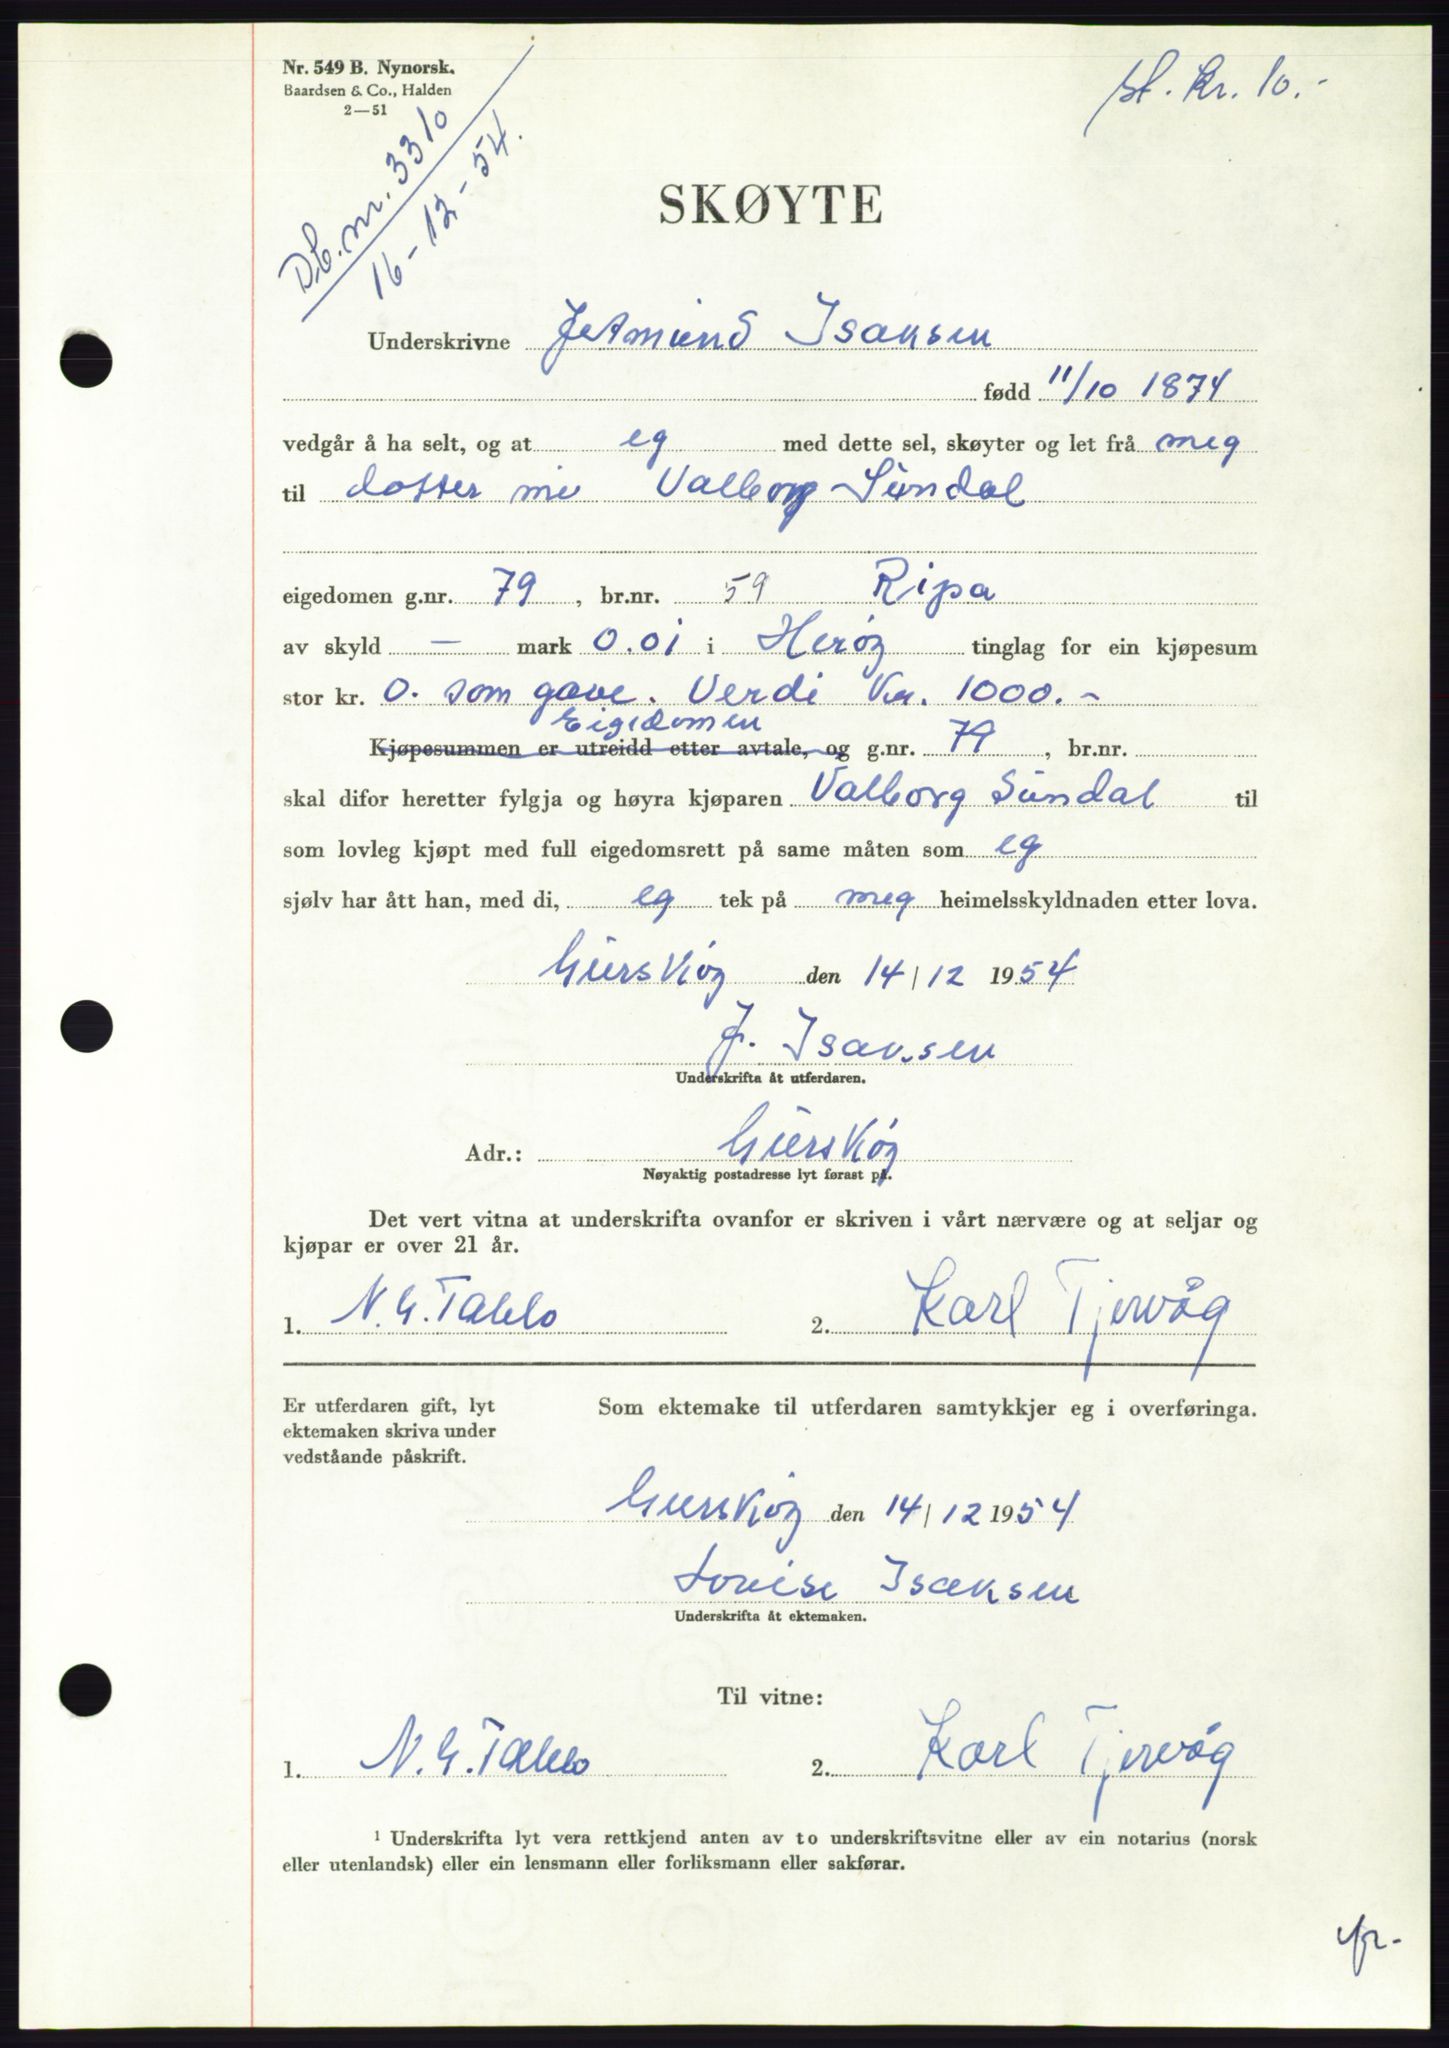 Nr. 549 B. Nynorsk.
Baardsen & Co., Halden
2—51
st. kr. 10.-
D.b. nr. 3310
16-12-54.
SKØYTE
Underskrivne Jetmund Isaksen
fødd 11/10 1874
vedgår å ha selt, og at eg med dette sel, skøyter og let frå meg
til dotter mi Valborg Sundal
eigedomen g.nr. 79, br.nr. 59 Ripa
av skyld — mark 0.01 i Herøy tinglag for ein kjøpesum
stor kr. 0. som gave. Verdi Kr. 1000.-
Eigedomen
Kjøpesummen er utreidd etter avtale, og g.nr. 79, br.nr.
skal difor heretter fylgja og høyra kjøparen Valborg Sundal til
som lovleg kjøpt med full eigedomsrett på same måten som eg
sjølv har ått han, med di, eg tek på meg heimelsskyldnaden etter lova.
Gurskøy den 14/12 1954
J. Isaksen
Underskrifta åt utferdaren.
Adr.: Gurskøy
Nøyaktig postadresse lyt førast på.
Det vert vitna at underskrifta ovanfor er skriven i vårt nærvære og at seljar og
kjøpar er over 21 år.
1. N. G. Tablo 2. Karl Tjervåg
Er utferdaren gift, lyt
ektemaken skriva under
vedståande påskrift.
Som ektemake til utferdaren samtykkjer eg i overføringa.
Gurskøy den 14/12 1954
Lovise Isaksen
Underskrifta åt ektemaken.
Til vitne:
1. N. G. Tablo 2. Karl Tjervåg
¹ Underskrifta lyt vera rettkjend anten av to underskriftsvitne eller av ein notarius (norsk
eller utenlandsk) eller ein lensmann eller forliksmann eller sakførar.